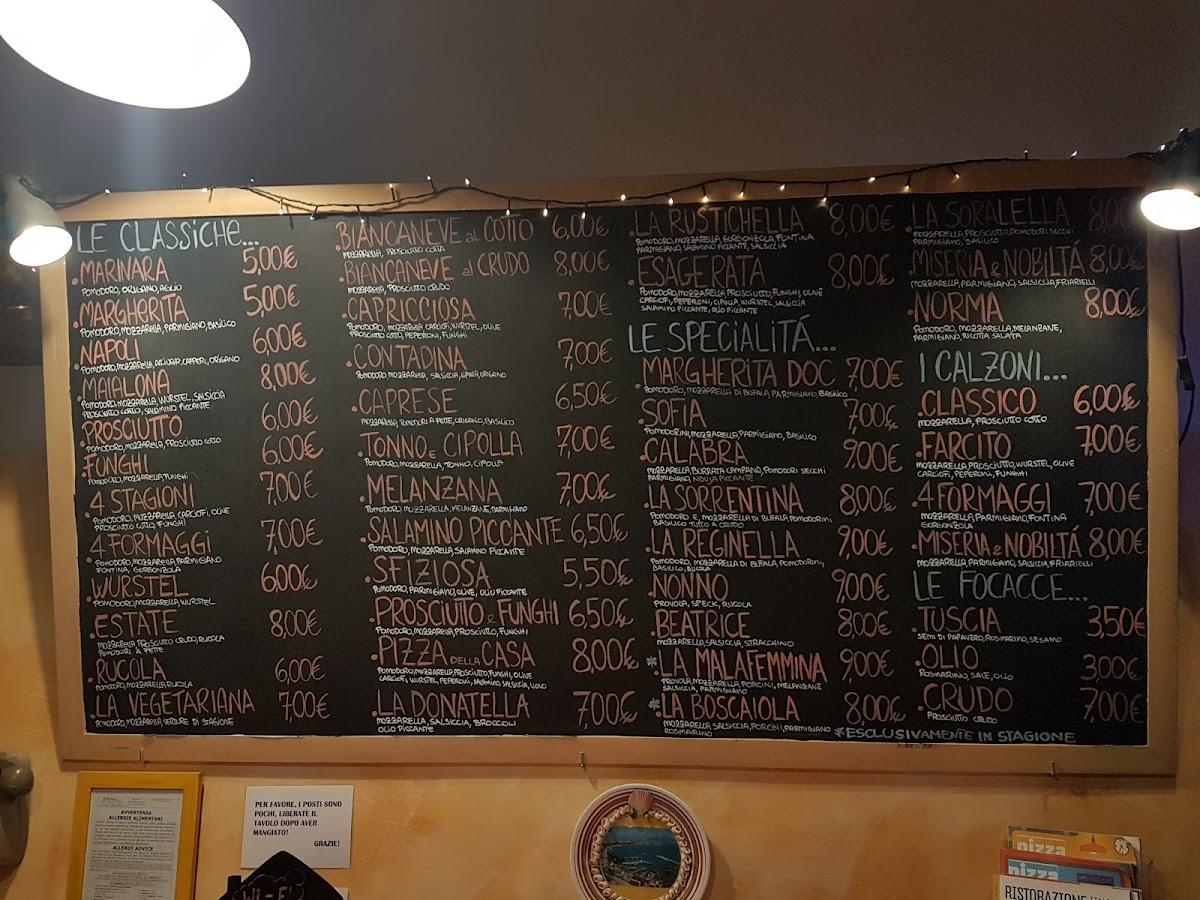 LE CLASSICHE...
.MARINARA 5,00€
POMODORO, ORIGANO, AGLIO
.MARGHERITA 5,00€
POMODORO, MOZZARELLA, PARMIGIANO, BASILICO
.NAPOLI 6,00€
POMODORO, MOZZARELLA, ALICI, CAPPERI, ORIGANO
.MAIALONA 8,00€
POMODORO, MOZZARELLA, WURSTEL, SALSICCIA
PROSCIUTTO COTTO, SALAMINO PICCANTE
.PROSCIUTTO 6,00€
POMODORO, MOZZARELLA, PROSCIUTTO COTTO
.FUNGHI 6,00€
POMODORO, MOZZARELLA, FUNGHI
.4 STAGIONI 7,00€
POMODORO, MOZZARELLA, CARCIOFI, OLIVE
PROSCIUTTO COTTO, FUNGHI
.4 FORMAGGI 7,00€
POMODORO, MOZZARELLA, PARMIGIANO
FONTINA, GORGONZOLA
.WURSTEL 6,00€
POMODORO, MOZZARELLA, WURSTEL
.ESTATE 8,00€
MOZZARELLA, PROSCIUTTO CRUDO, RUCOLA
POMODORI A FETTE
.RUCOLA 6,00€
POMODORO, MOZZARELLA, RUCOLA
.LA VEGETARIANA 7,00€
POMODORO, MOZZARELLA, VERDURE DI STAGIONE
.BIANCANEVE al COTTO 6,00€
MOZZARELLA, PROSCIUTTO COTTO
.BIANCANEVE al CRUDO 8,00€
MOZZARELLA, PROSCIUTTO CRUDO
.CAPRICCIOSA 7,00€
POMODORO, MOZZARELLA CARCIOFI, WURSTEL, OLIVE
PROSCIUTTO COTTO, PEPERONI, FUNGHI
.CONTADINA 7,00€
POMODORO MOZZARELLA, SALSICCIA, ORIGANO
.CAPRESE 6,50€
MOZZARELLA, POMODORI A FETTE, ORIGANO, BASILICO
.TONNO E CIPOLLA 7,00€
POMODORO, MOZZARELLA, TONNO, CIPOLLA
.MELANZANA 7,00€
POMODORO, MOZZARELLA, MELANZANE, PARMIGIANO
.SALAMINO PICCANTE 6,50€
POMODORO, MOZZARELLA, SALAMINO PICCANTE
.SFIZIOSA 5,50€
POMODORO, PARMIGIANO, OLIVE, OLIO PICCANTE
.PROSCIUTTO e FUNGHI 6,50€
POMODORO, MOZZARELLA, PROSCIUTTO, FUNGHI
.PIZZA DELLA CASA 8,00€
POMODORO, MOZZARELLA, PROSCIUTTO, FUNGHI, OLIVE
CARCIOFI, WURSTEL, PEPERONI, SALAMINO, SALSICCIA, UOVO
.LA DONATELLA 7,00€
MOZZARELLA, SALSICCIA, BROCCOLI
OLIO PICCANTE
.LA RUSTICHELLA 8,00€
POMODORO, MOZZARELLA, GORGONZOLA, FONTINA
PARMIGIANO, SALAMINO PICCANTE, SALSICCIA
.ESAGERATA 8,00€
POMODORO, MOZZARELLA PROSCIUTTO, FUNGHI, OLIVE
CARCIOFI, PEPERONI, CIPOLLA, WURSTEL, SALSICCIA
SALAMINO PICCANTE, OLIO PICCANTE
LE SPECIALITÁ...
.MARGHERITA DOC 7,00€
POMODORO, MOZZARELLA DI BUFALA, PARMIGIANO, BASILICO
.SOFIA 7,00€
POMODORINI, MOZZARELLA, PARMIGIANO, BASILICO
.CALABRA 9,00€
MOZZARELLA, BURRATA CAMPANO, POMODORI SECCHI
PARMIGIANO, NDUJA PICCANTE
.LA SORRENTINA 8,00€
POMODORO E MOZZARELLA DI BUFALA, POMODORINI
BASILICO TUTTO A CRUDO
.LA REGINELLA 9,00€
POMODORO, MOZZARELLA DI BUFALA, POMODORINI,
BASILICO, RUCOLA
.NONNO 9,00€
PROVOLA, SPECK, RUCOLA
.BEATRICE 8,00€
MOZZARELLA, SALSICCIA, STRACCHINO
*.LA MALAFEMMINA 9,00€
PROVOLA, MOZZARELLA, PORCINI, MELANZANE
SALSICCIA, PARMIGIANO
*.LA BOSCAIOLA 8,00€
MOZZARELLA, SALSICCIA, PORCINI, PARMIGIANO
ROSMARINO
.LA SORALELLA 8,00
MOZZARELLA, PROSCIUTTO, POMODORI SECCHI
PARMIGIANO, BASILICO
.MISERIA & NOBILTÁ 8,00€
MOZZARELLA, PARMIGIANO, SALSICCIA, FRIARIELLI
.NORMA 8,00€
POMODORO, MOZZARELLA, MELANZANE,
PARMIGIANO, RICOTTA SALATA
I CALZONI...
.CLASSICO 6,00€
MOZZARELLA, PROSCIUTTO COTTO
.FARCITO 7,00€
MOZZARELLA, PROSCIUTTO, WURSTEL, OLIVE
CARCIOFI, PEPERONI, FUNGHI
.4 FORMAGGI 7,00€
MOZZARELLA, PARMIGIANO, FONTINA
GORGONZOLA
.MISERIA & NOBILTÁ 8,00€
MOZZARELLA, PARMIGIANO, SALSICCIA, FRIARIELLI
LE FOCACCE...
.TUSCIA 3,50€
SEMI DI PAPAVERO, ROSMARINO, SESAMO
.OLIO 3,00€
ROSMARINO, SALE, OLIO
.CRUDO 7,00€
PROSCIUTTO CRUDO
*ESCLUSIVAMENTE IN STAGIONE
AVVERTENZA
ALLERGIE ALIMENTARI
ALLERGY ADVICE
PER FAVORE, I POSTI SONO
POCHI, LIBERATE IL
TAVOLO DOPO AVER
MANGIATO!
GRAZIE!
pizza
pizza
RISTORAZIONE